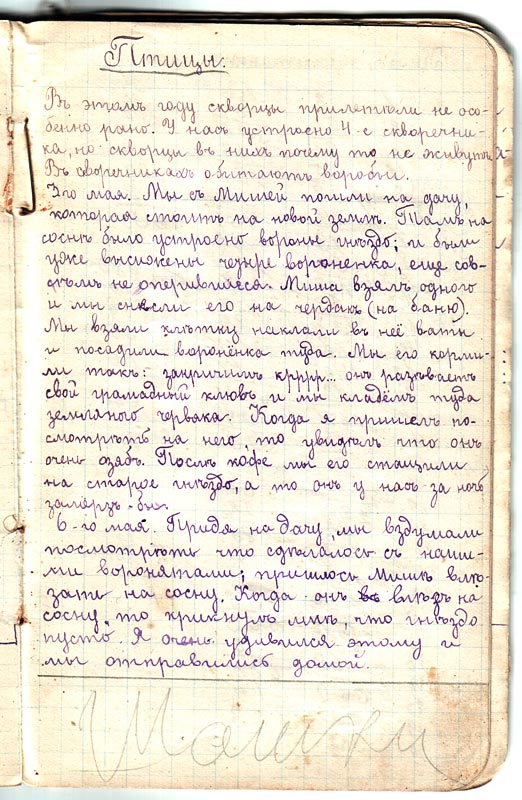 Птицы.
Въ этомъ году скворцы прилетѣли не осо-
бенно рано. У насъ устроено 4-е скворечни-
ка, но скворцы въ нихъ почему то не живутъ.
Въ скворечникахъ обитаютъ воробьи.
3го мая. Мы съ Мишей пошли на дачу,
которая стоитъ на новой землѣ. Тамъ на
соснѣ было устроено воронье гнѣздо; и были
уже высижены четыре вороненка, еще сов-
сѣмъ не оперившиеся. Миша взялъ одного
и мы снесли его на чердакъ (на баню).
Мы взяли клѣтку наклали въ неё ваты
и посадили воронёнка туда. Мы его корми-
ли такъ: закричимъ кррр... онъ разѣваетъ
свой грамадный клювъ и мы кладёмъ туда
земляного червяка. Когда я пришелъ по-
смотрѣть на него, то увидѣлъ что онъ
очень озябъ. Послѣ кофе мы его стащили
на старое гнѣздо, а то онъ у насъ за ночь
замёрзъ-бы.
6-го мая. Придя на дачу, мы вздумали
посмотрѣть что сдѣлалось съ наши-
ми воронятами; пришлось Мишѣ влѣ-
зать на сосну. Когда онъ влѣзъ на
сосну, то крикнулъ мнѣ, что гнѣздо
пусто. Я очень удивился этому и
мы отправились домой.